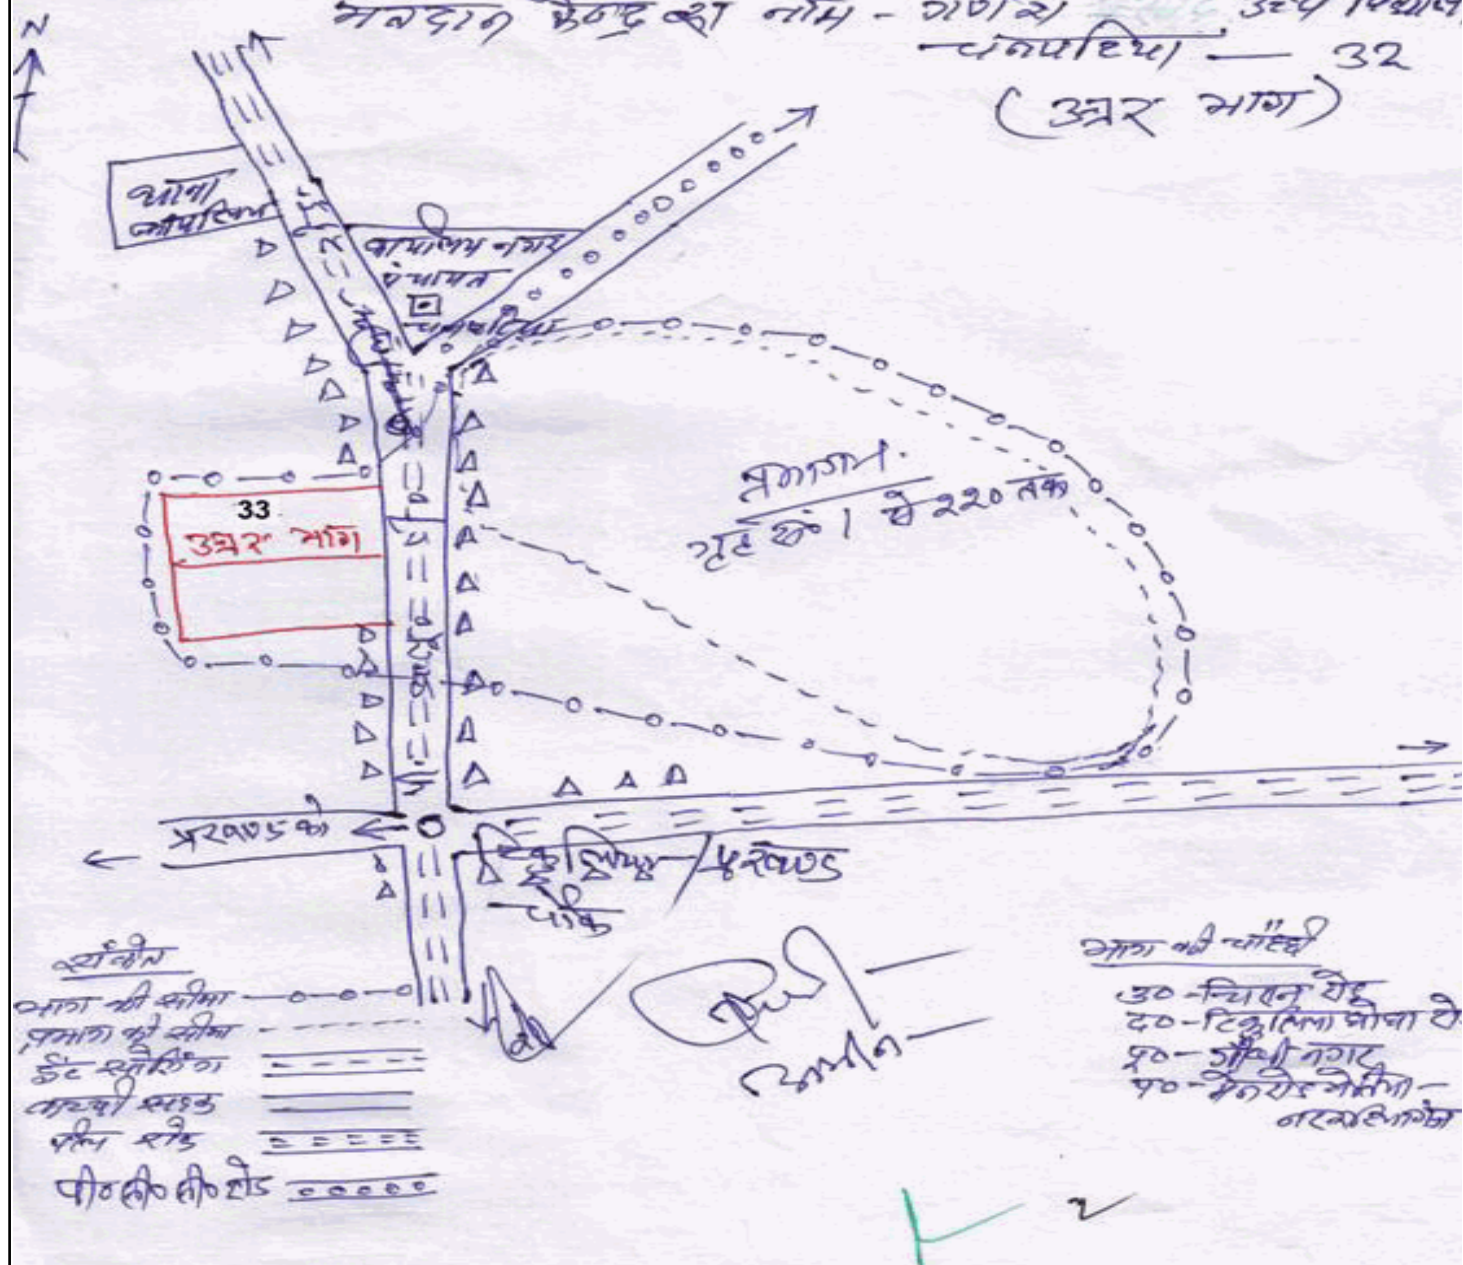 N
मतदान केन्द्र का नाम - उच्च
चनपटिया — 32
(उत्तर भाग)
थाना
चनपटिया
कार्यालय नगर
पंचायत
चनपटिया
33
उत्तर भाग
प्रभाग 1.
गृह सं० 1 से २२० तक
प्रखण्ड को
टिकुलिया / प्रखण्ड
चौक
संकेत
भाग की सीमा
प्रभाग की सीमा
ईंट सोलिंग
कच्ची सड़क
रोड
पी० सी० सी० रोड
अमीन
भाग की चौहद्दी
उ० - रोड
द० - टिकुलिया
पू० - गाँधी नगर
प० - मेन रोड बेतिया -
नरकटियागंज